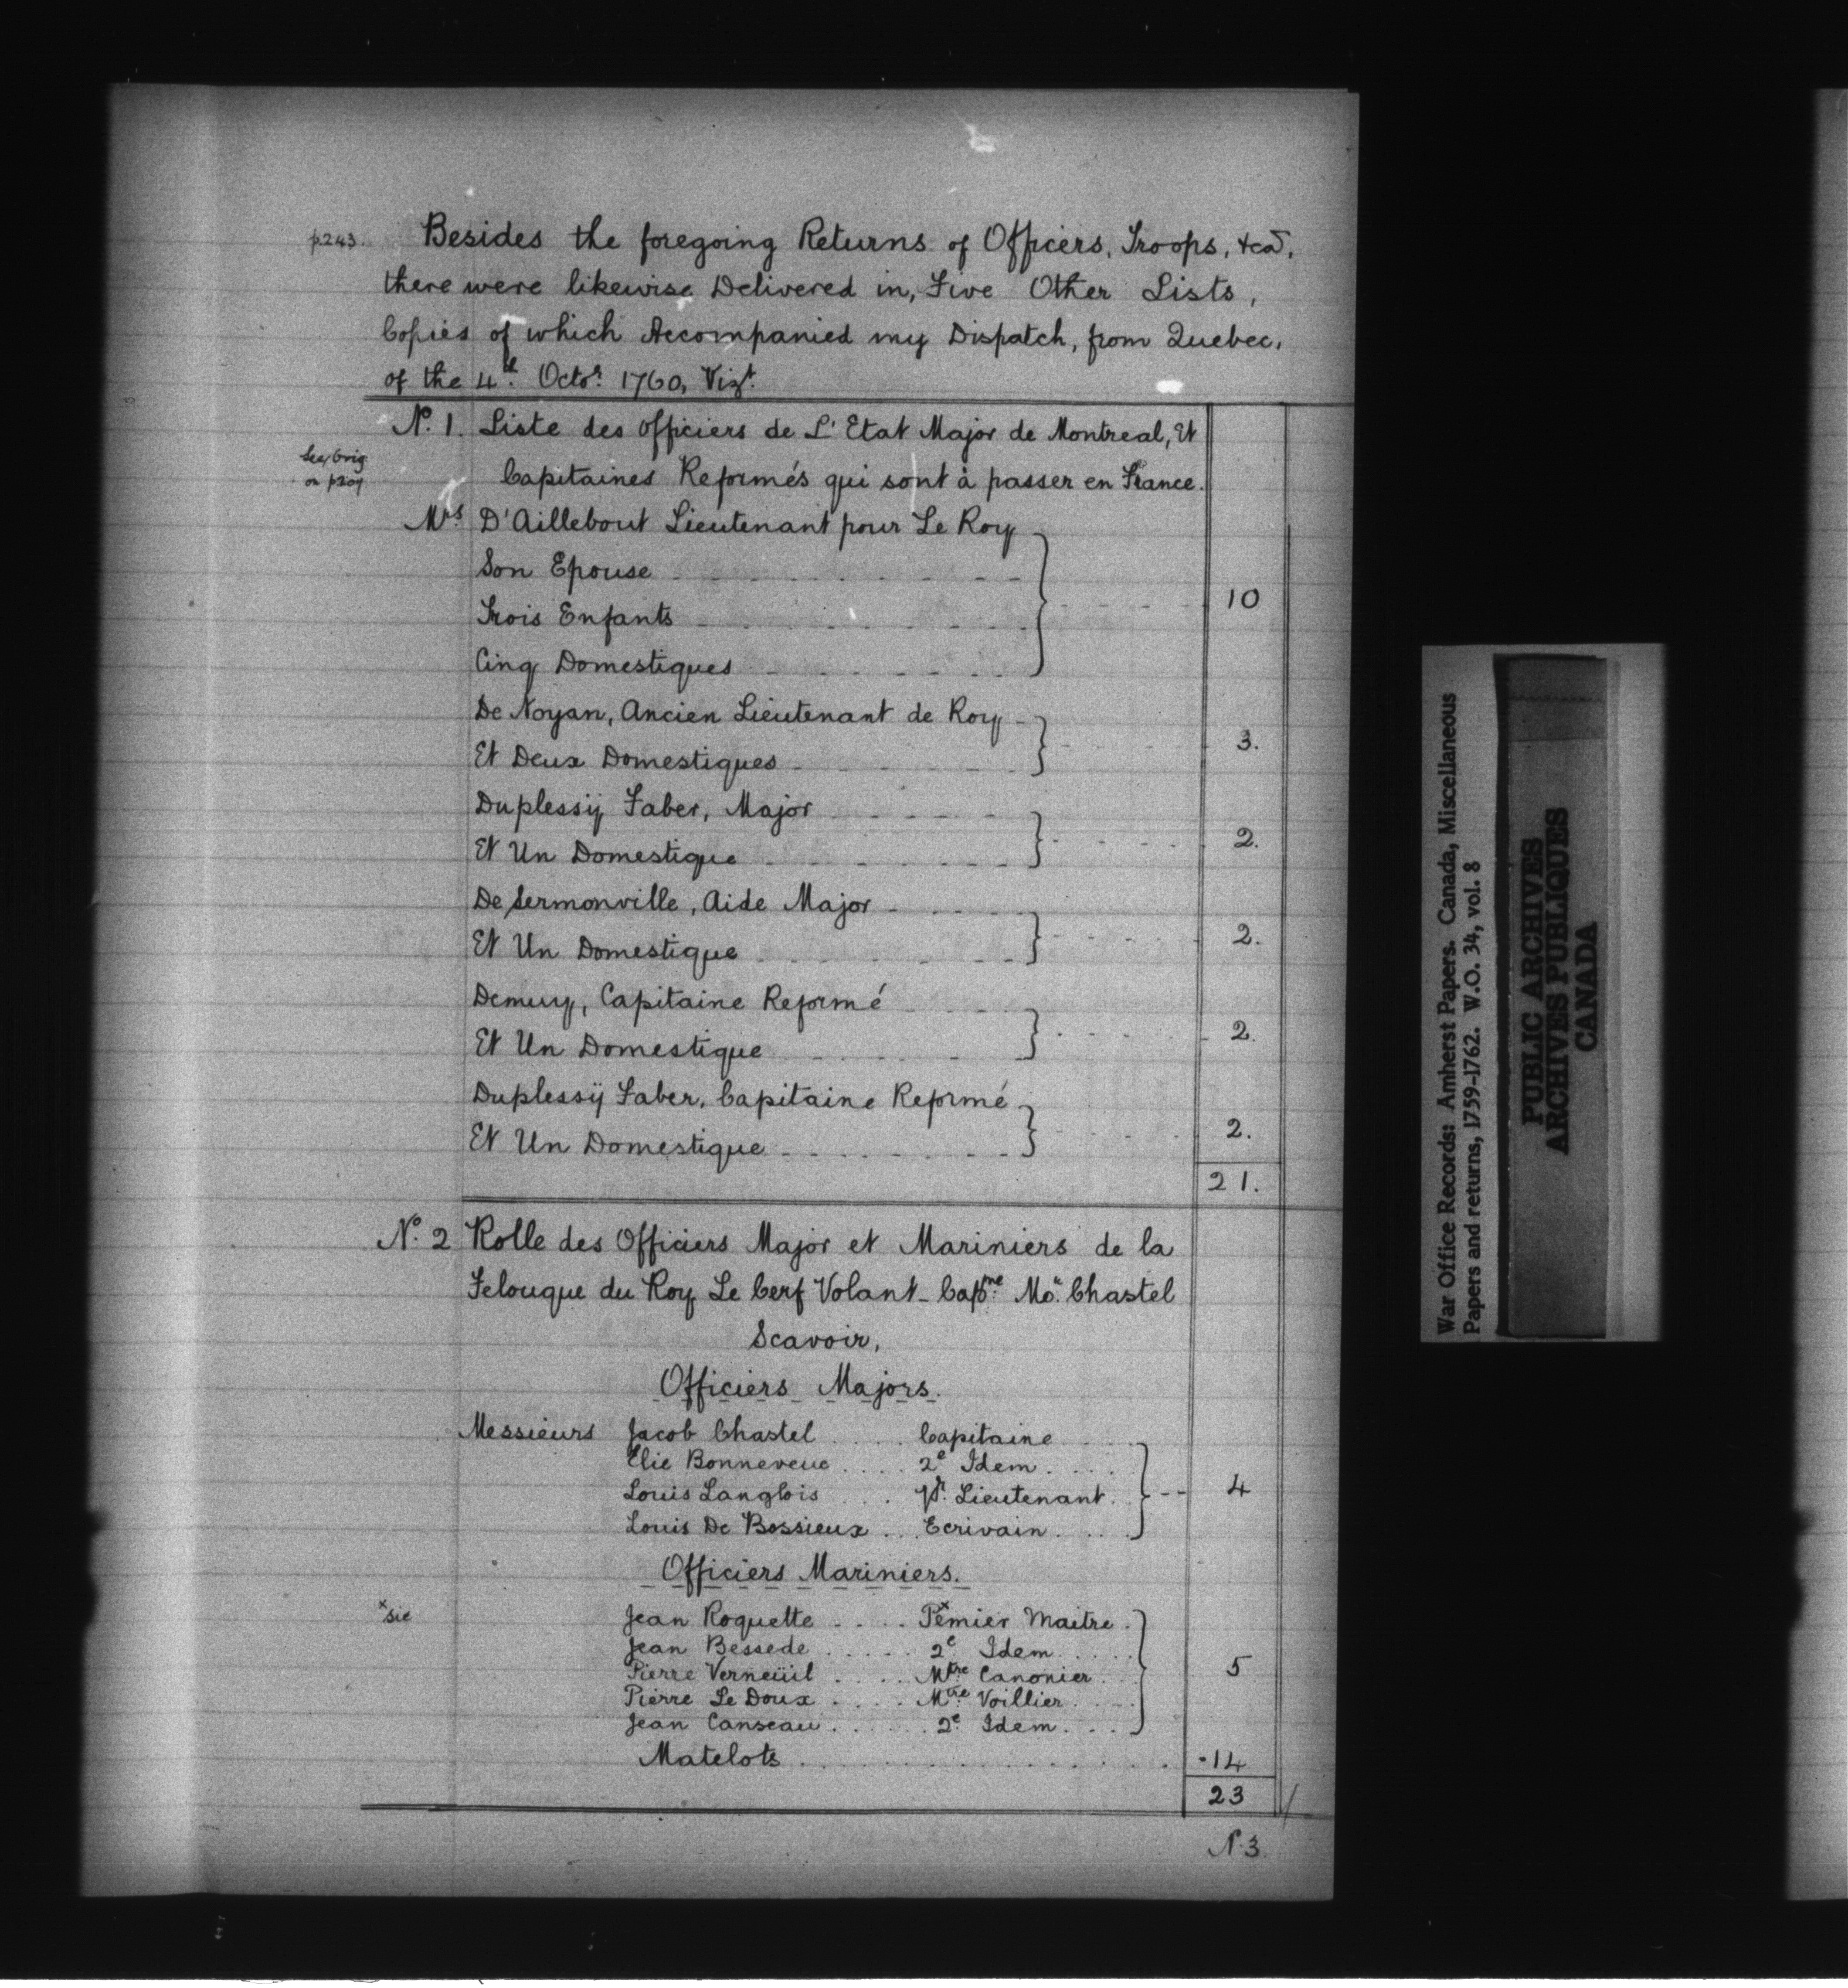 p.243. Besides the foregoing Returns of Officers, Troops, &ca.,
there were likewise Delivered in, Five Other Lists,
Copies of which Accompanied my Dispatch, from Quebec,
of the 4th. Octor. 1760, Vizt.
No. 1. Liste des Officiers de L'Etat Major de Montreal, Et
See Orig
on p204
Capitaines Reformés qui sont à passer en France.
Mrs D'Aillebout Lieutenant pour Le Roy
Son Epouse
Trois Enfants
10
Cinq Domestiques
De Noyan, Ancien Lieutenant de Roy
3.
Et Deux Domestiques
Duplessÿ Faber, Major
2.
Et Un Domestique
De Sermonville, Aide Major
2.
Et Un Domestique
Demuy, Capitaine Reformé
2.
Et Un Domestique
Duplessÿ Faber, Capitaine Reformé
2.
Et Un Domestique
21.
No. 2 Rolle des Officiers Major et Mariniers de la
Felouque du Roy Le Cerf Volant_ Capne. Mor. Chastel
Scavoir,
Officiers Majors.
Messieurs Jacob Chastel .... Capitaine
Elie Bonneveue .... 2e Idem
Louis Langlois ... 1r. Lieutenant. 4
Louis De Bossieux ... Ecrivain
Officiers Mariniers.
x sic Jean Roquette .... Pxemier Maitre
Jean Bessede ..... 2e Idem
Pierre Verneüil .... Mtre Canonier 5
Pierre Le Doux .... Mtre Voillier
Jean Canseau ...... 2e. Idem
Matelots .14
23
N.3.
War Office Records: Amherst Papers. Canada, Miscellaneous
Papers and returns, 1759-1762. W.O. 34, vol. 8
PUBLIC ARCHIVES
ARCHIVES PUBLIQUES
CANADA